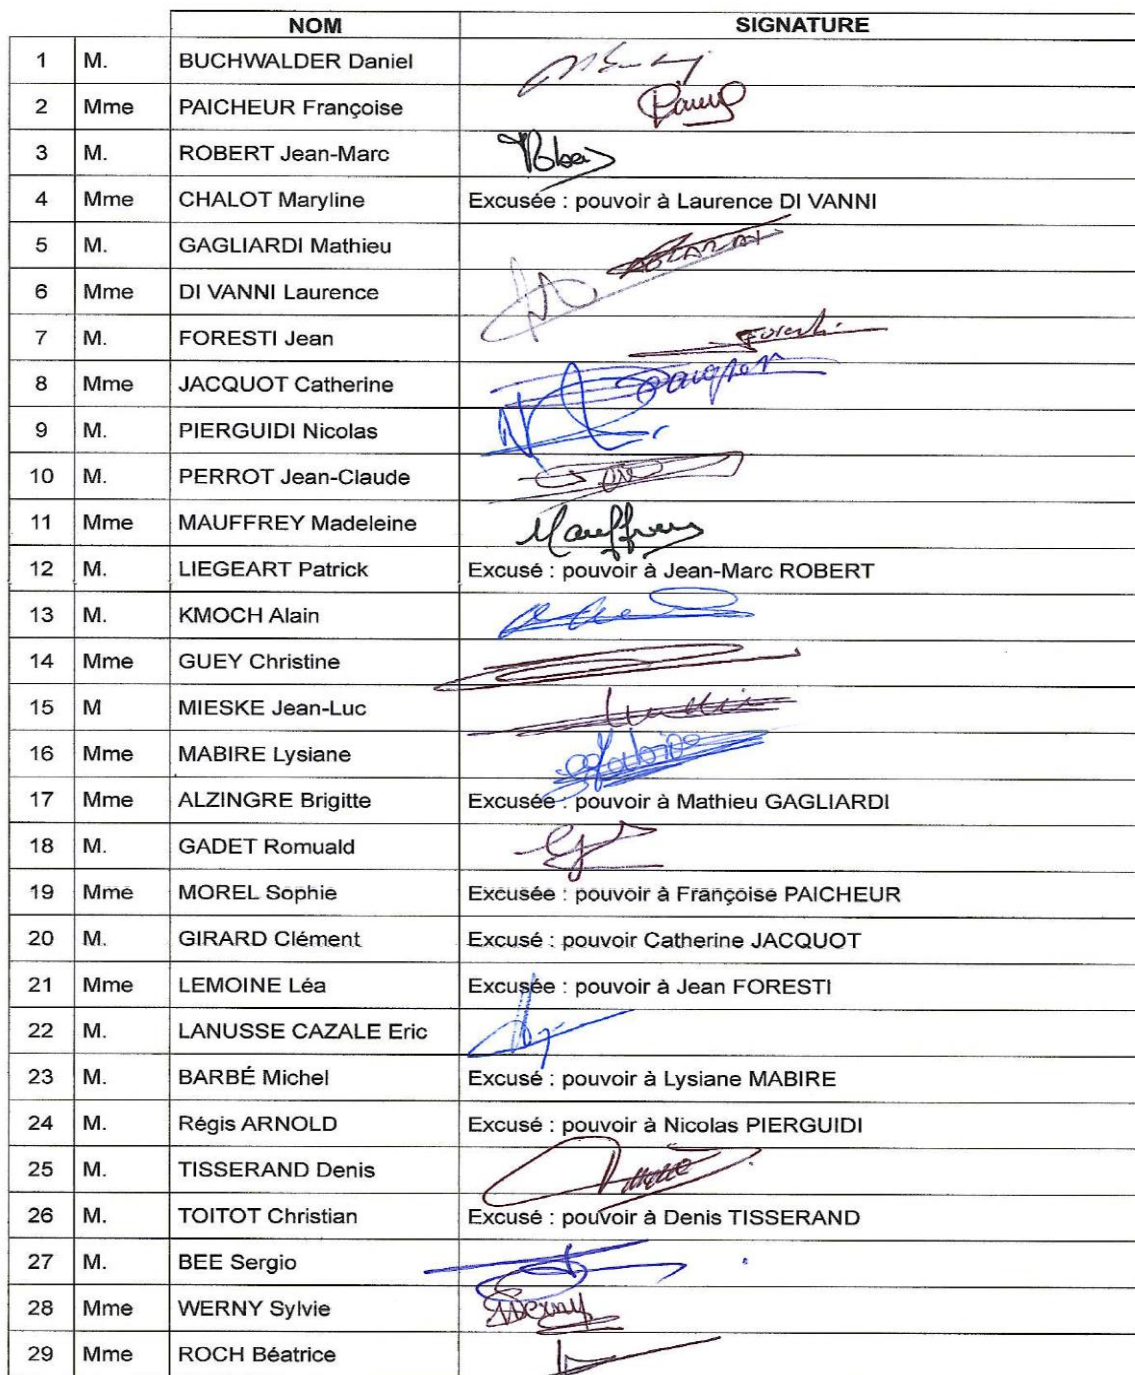 NOM SIGNATURE
1 M. BUCHWALDER Daniel
2 Mme PAICHEUR Françoise
3 M. ROBERT Jean-Marc
4 Mme CHALOT Maryline Excusée : pouvoir à Laurence DI VANNI
5 M. GAGLIARDI Mathieu
6 Mme DI VANNI Laurence
7 M. FORESTI Jean Foresti
8 Mme JACQUOT Catherine
9 M. PIERGUIDI Nicolas
10 M. PERROT Jean-Claude
11 Mme MAUFFREY Madeleine Mauffrey
12 M. LIEGEART Patrick Excusé : pouvoir à Jean-Marc ROBERT
13 M. KMOCH Alain
14 Mme GUEY Christine
15 M MIESKE Jean-Luc
16 Mme MABIRE Lysiane Mabire
17 Mme ALZINGRE Brigitte Excusée : pouvoir à Mathieu GAGLIARDI
18 M. GADET Romuald
19 Mme MOREL Sophie Excusée : pouvoir à Françoise PAICHEUR
20 M. GIRARD Clément Excusé : pouvoir Catherine JACQUOT
21 Mme LEMOINE Léa Excusée : pouvoir à Jean FORESTI
22 M. LANUSSE CAZALE Eric
23 M. BARBÉ Michel Excusé : pouvoir à Lysiane MABIRE
24 M. Régis ARNOLD Excusé : pouvoir à Nicolas PIERGUIDI
25 M. TISSERAND Denis
26 M. TOITOT Christian Excusé : pouvoir à Denis TISSERAND
27 M. BEE Sergio
28 Mme WERNY Sylvie Werny
29 Mme ROCH Béatrice